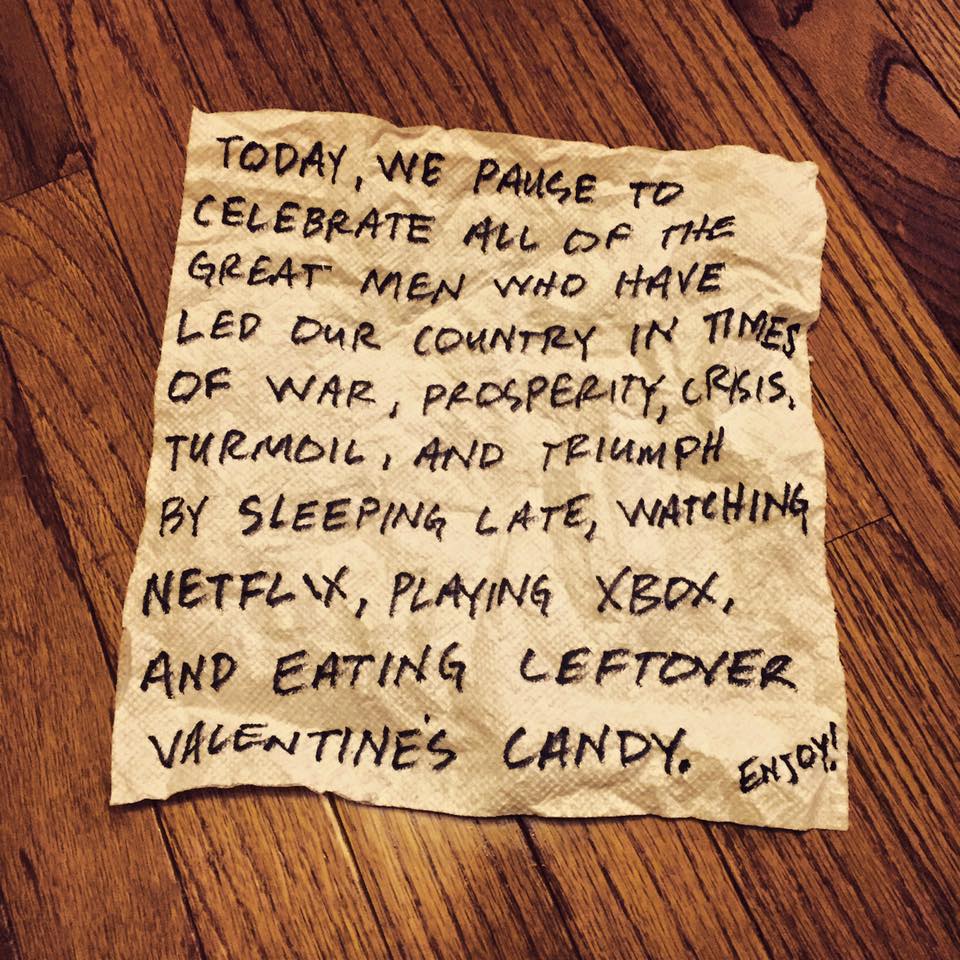 TODAY, WE PAUSE TO
CELEBRATE ALL OF THE
GREAT MEN WHO HAVE
LED OUR COUNTRY IN TIMES
OF WAR, PROSPERITY, CRISIS,
TURMOIL, AND TRIUMPH
BY SLEEPING LATE, WATCHING
NETFLIX, PLAYING XBOX,
AND EATING LEFTOVER
VALENTINE'S CANDY.
ENJOY!